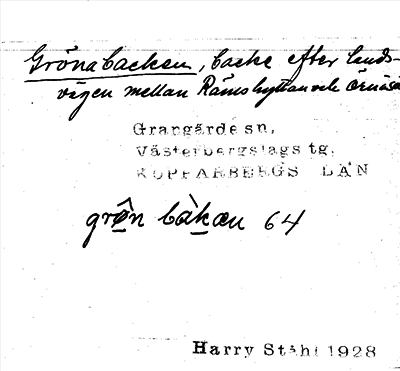 Gröna backen, backe efter lands-
vägen mellan Rämshyttan och Örnäset
Grangärde sn,
Västerbergslags tg,
KOPPARBERGS LÄN
grø̂n bàkæn 64
Harry Ståhl 1928